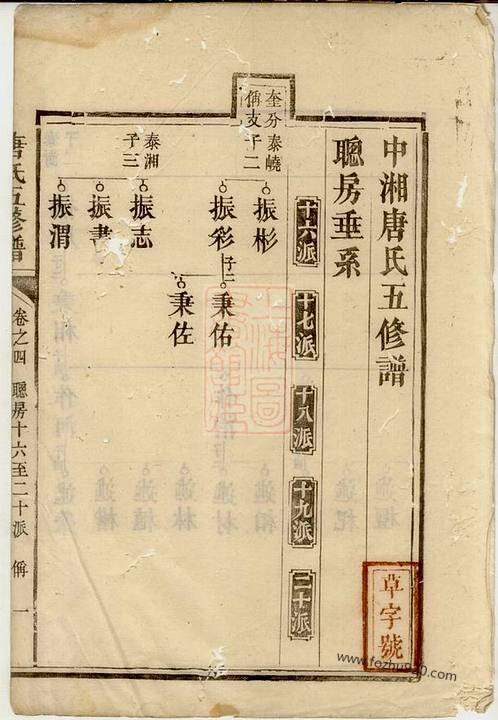 中湘唐氏五修譜
聰房垂系
十六派
十七派
十八派
十九派
二十派
奎分
偁支
泰嶢
子二
振彬
振彩
子二
秉佑
秉佐
泰湘
子三
振志
振書
振渭
唐氏五修譜
卷之四
聰房十六至二十派
偁
一
草字號